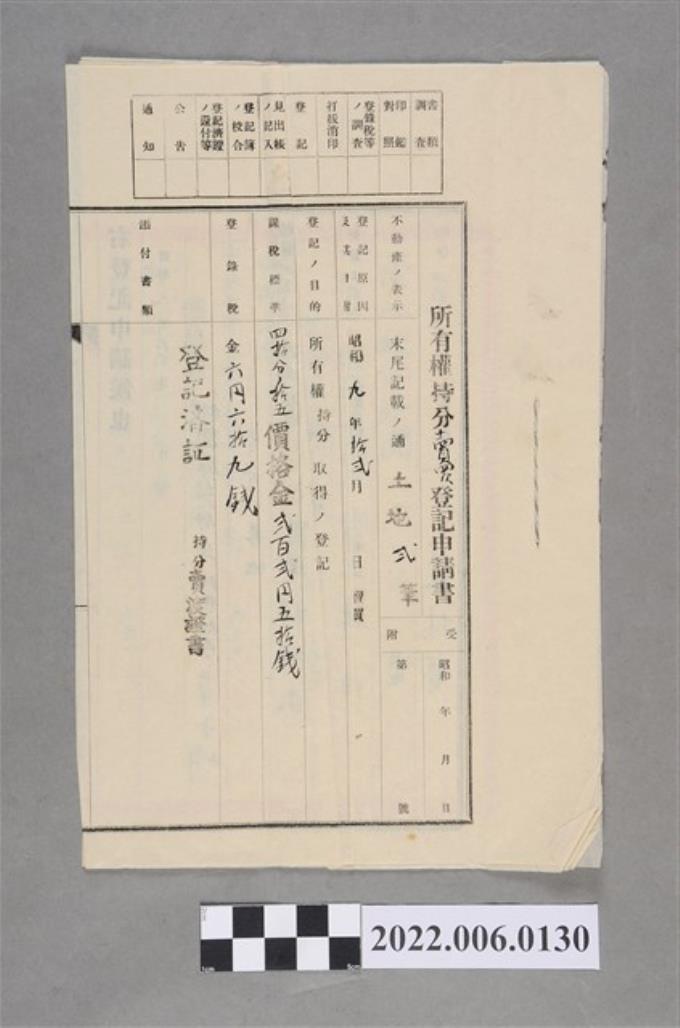 書類調査
印鑑對照
登錄稅等ノ調査
打抜消印
登記
見出帳ノ記入
登記簿ノ校合
登記濟證ノ還付等
公告
通知
所有權持分賣買登記申請書
受附
昭和 年 月 日
第 號
不動產ノ表示
末尾記載ノ通 土地 弍筆
登記原因及其日附
昭和九年拾弍月 日 賣買
登記ノ目的
所有權持分取得ノ登記
課稅標準
四拾分拾五價格金弍百弍円五拾錢
登錄稅
金六円六拾九錢
添付書類
登記済証
持分賣渡證書
右登記申請候也
2022.006.0130